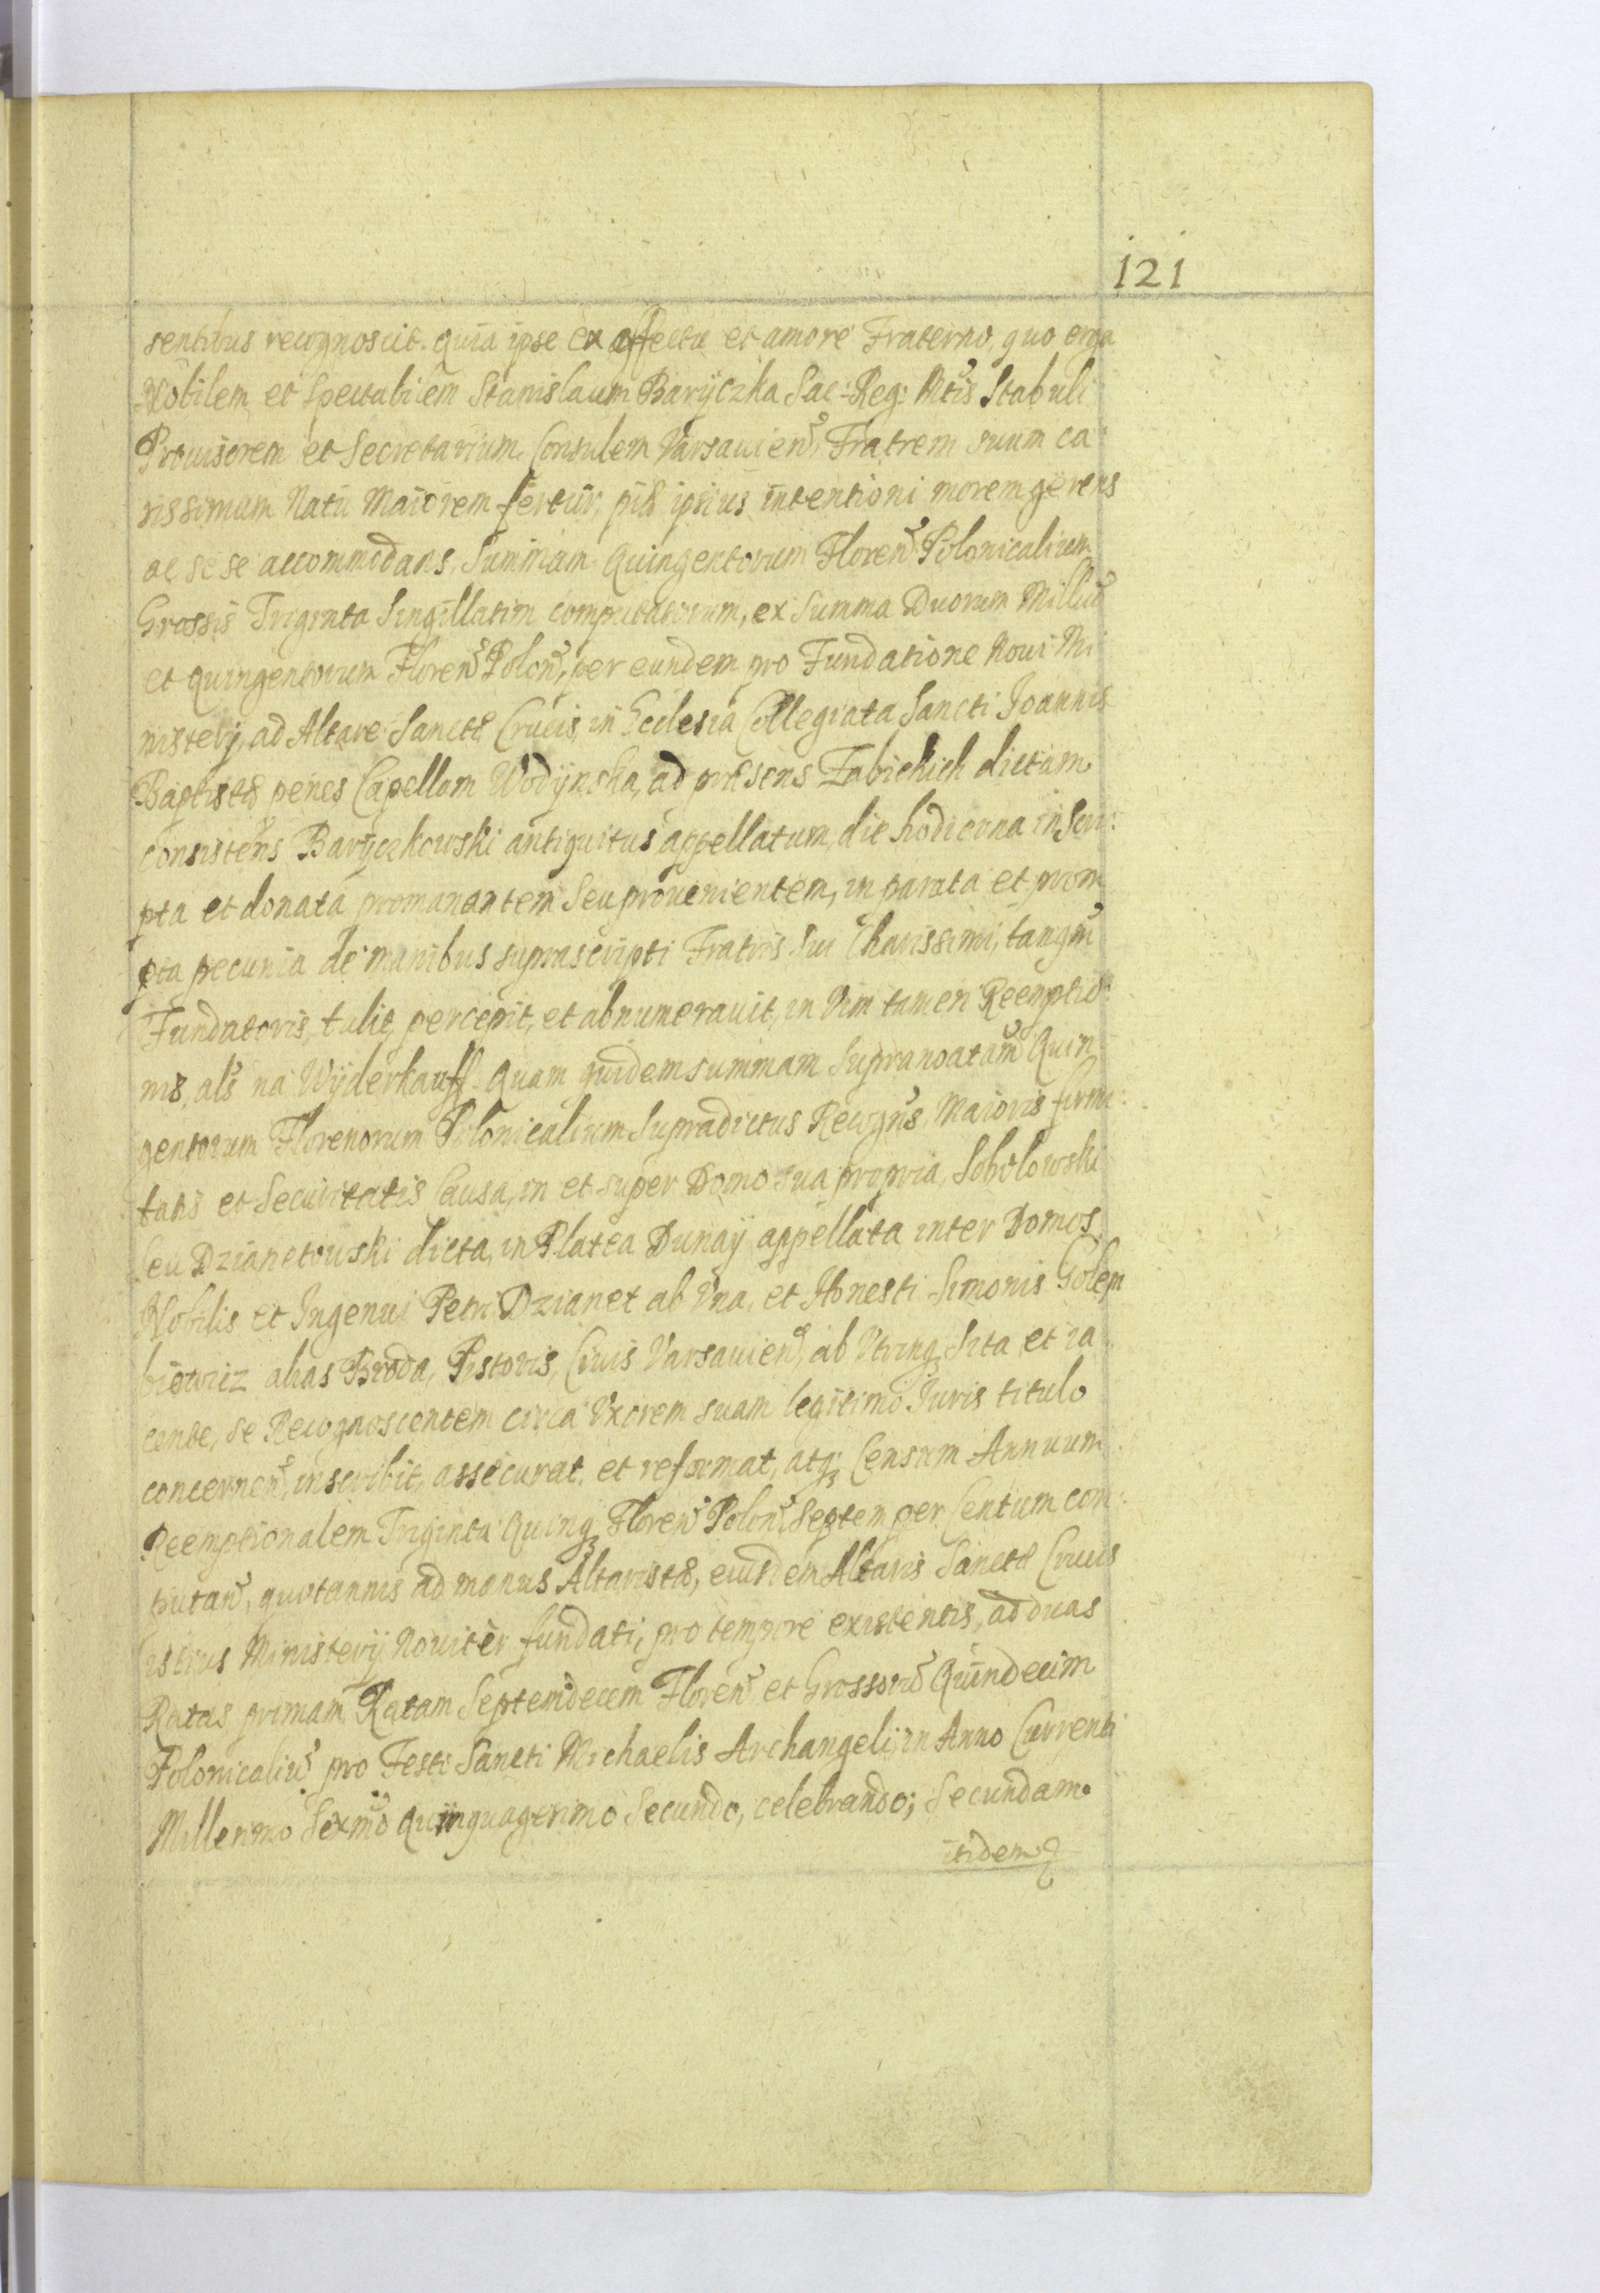 121
sentibus recognoscit. quia ipse ex affectu et amore Fraterno, quo erga
Nobilem et Spectabilem Stanislaum Baryczka Sac: Reg: Mtis Stabuli
Prouisorem et Secretarium Consulem Varsauien, Fratrem suum ca
rissimum Natu Maiorem fertur, piæ ipsius intentioni morem gerens
ac sese accommodans, Summam Quingentorum Floren Polonicalium
Grossis Triginta Singillatim computatorum, ex Summa Duorum Milliu
et Quingentorum Floren Polon, per eundem pro Fundatione Noui Mi
nisterij, ad Altare Sanctæ Crucis, in Ecclesia Collegiata Sancti Joannis
Baptistæ penes Capellam Wodynska, ad præsens Zabickich dictam
consistens Baryczkowski antiquitus appellatum, die hodierna inscri:
pta et donata promanantem seu prouenientem, in parata et prom
pta pecunia de manibus suprascripti Fratris Sui Charissimi, tanqm
Fundatoris, tulit, percepit, et abnumerauit, in Vim tamen Reemptio:
nis, als na Wyderkauff. Quam quidem summam Supranoatam Quin
gentorum Florenorum Polonicalium Supradictus Recogns, Maioris firmi:
tatis et Securitatis Causa, in et super Domo sua propria, Sokolowski
seu Dzianetowski dicta, in Platea Dunay appellata inter Domos
Nobilis et Ingenui Petri Dzianet ab Vna, et Honesti Simonis Golem
biowicz alias Broda, Pistoris, Ciuis Varsauien, ab Vtrinq3 Sita et ia
cente, se Recognoscentem circa Vxorem suam legitimo Juris titulo
concernen, inscribit, assecurat, et reformat, atq3 Censum Annuum
Reemptionalem Triginta Quinq3 Floren Polon, Septem per Centum com:
putan, quotannis ad manus Altaristæ, eiusdem Altaris Sanctæ Crucis
istius Ministerij Nouiter fundati, pro tempore existentis, ad duas
Ratas, primam Ratam Septemdecem Floren et Grossoru Quindecim
Polonicaliu pro Festi Sancti Michaelis Archangeli, in Anno Currenti
Millenmo Sexmo Quinquagesimo Secundo, celebrando; Secundam
itidem